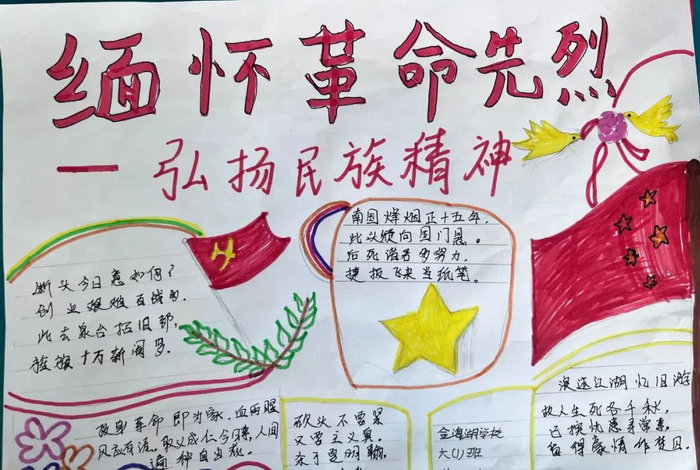 缅怀革命先烈
— 弘扬民族精神
断头今日意如何?
创业艰难百战多,
此去泉台招旧部,
旌旗十万斩阎罗.
南国烽烟正十五年,
此头须向国门悬。
后死诸君多努力,
捷报飞来当纸笔。
投身革命即为家,血雨腥
风应有涯。取义成仁今日事,人间
遍种自由花
砍头不要紧
只要主义真。
杀了夏明翰,
金海湖学校
六(1)班
浪迹江湖忆旧游
故人生死各千秋,
已摈忧患寻常事,
留得豪情作楚囚